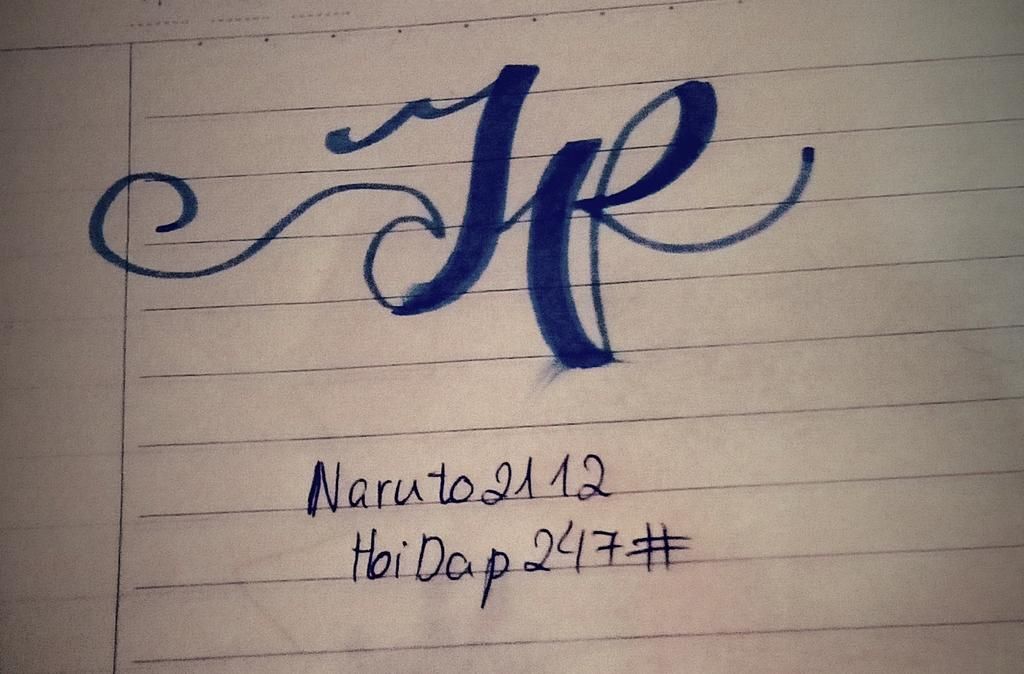 H
Naruto2112
HoiDap247#